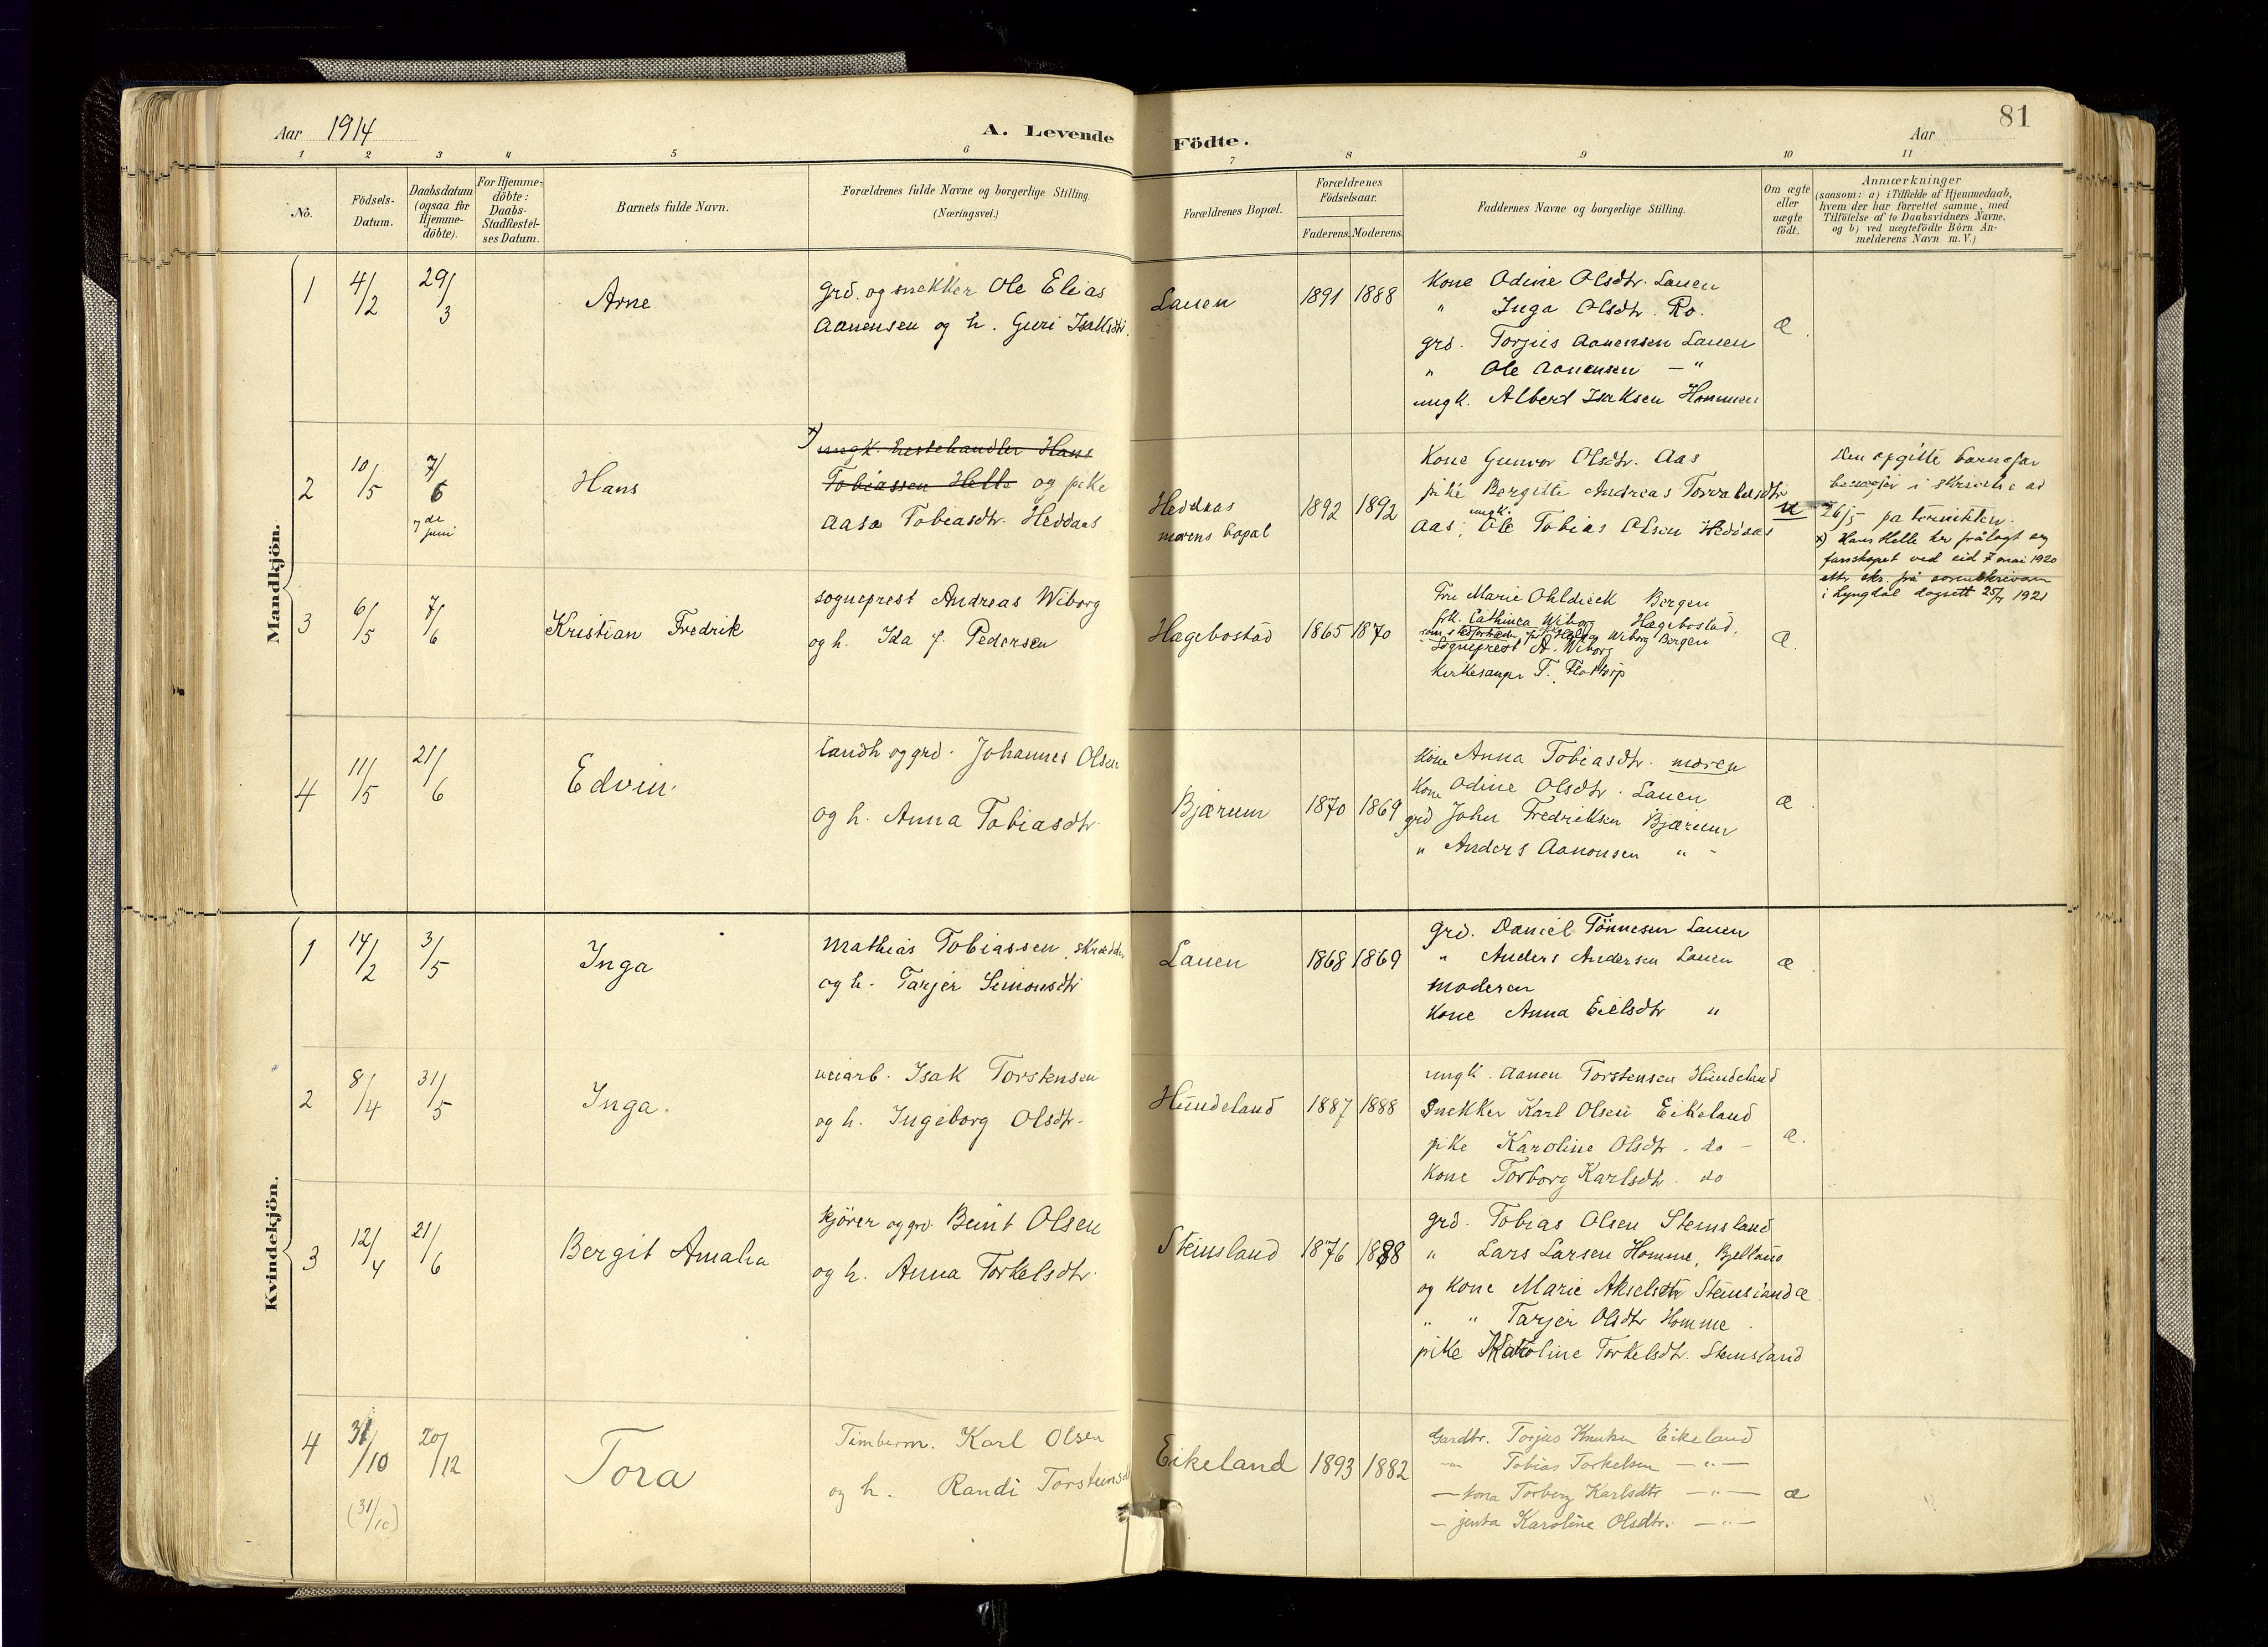 81
Aar 1914
A. Levende Födte.
Aar
1 2 3 4 5 6 7 8 9 10 11
No.
Födsels-Datum.
Daabsdatum (ogsaa for Hjemme-döbte).
For Hjemme-döbte: Daabs-Stadfæstel-ses Datum.
Barnets fulde Navn.
Forældrenes fulde Navne og borgerlige Stilling.
(Næringsvei.)
Forældrenes Bopæl.
Forældrenes Födselsaar.
Faderens. Moderens.
Faddernes Navne og borgerlige Stilling.
Om ægte eller uægte födt.
Anmærkninger
(saasom: a) i Tilfælde af Hjemmedaab,
hvem der har forrettet samme, med
Tilföielse af to Daabsvidners Navne.
og b) ved uægtefödte Börn An-
melderens Navn m. V.)
Mandkjön.
1 4/2 29/3 Arne
grd. og snekker Ole Elias
Aanensen og h. Guri Isaksdtr.
Lauen 1891 1888
Kone Odine Olsdtr. Lauen
" Inga Olsdtr. Ro.
grd. Torjus Aanensen Lauen
" Ole Aanensen — "
ungk. Albert Isaksen Hommen
æ.
2 10/5 7/6 Hans
7de juni
x) ungk. hestehandler Hans
Tobiassen Helle og pike
Aasa Tobiasdtr. Heddaas
Heddaas
morens bopæl
1892 1892
Kone Gunvor Olsdtr. Aas
pike Bergitte Andreas
Aas, ungk. Ole Tobias Olsen Heddaas
u
Den opgitte barnefar
i skrivelse av
26/5
x) Hans Helle har frålagt seg
farsskapet ved eid 7 mai 1920
etter skr. frå sorenskrivaren
i Lyngdal dagsett 25/7 1921
3 6/5 7/6 Kristian Fredrik
sogneprest Andreas Wiborg
og h. Ida f. Pedersen
Hægebostad 1865 1870
Fru Marie Ohldieck Bergen
frk. Cathinca Wiborg Hægebostad.
Wiborg Bergen
Sogneprest A. Wiborg
Kirkesanger T.
æ.
4 11/5 21/6 Edvin.
landh og grd. Johannes Olsen
og h. Anna Tobiasdtr.
Bjærum 1870 1869
Kone Anna Tobiasdtr. moren
Kone Odine Olsdtr. Lauen
grd John Fredriksen Bjærum
" Anders Aanonsen " -
æ.
Kvindekjön.
1 14/2 3/5 Inga
Mathias Tobiassen, skrædder
og h. Tarjer Simonsdtr
Lauen 1868 1869
grd. Daniel Tönnesen Lauen
" Anders Andersen Lauen
moderen
Kone Anna Eielsdtr "
æ.
2 8/4 31/5 Inga.
veiarb. Isak Torstensen
og h. Ingeborg Olsdtr.
Hundeland 1887 1888
ungk. Aanen Torstensen Hundeland
Snekker Karl Olsen Eikeland
pike Karoline Olsdtr. do -
Kone Torborg Karlsdtr. do
æ.
3 12/4 21/6 Bergit Amalia
kjörer og grd. Beint Olsen
og h. Anna Torkelsdtr.
Steinsland 1876 1888
grd. Tobias Olsen Steinsland
" Lars Larsen Homme, Bjelland
og Kone Marie Akselsdtr Steinsland æ.
" " Tarjer Olsdtr Homme
pike Karoline Torkelsdtr. Steinsland
4 31/10 20/12 Tora
(31/10)
Timberm. Karl Olsen
og h. Randi Torsteinsd
Eikeland 1893 1882
Gardbr. Torjus Knutsen Eikeland
—"— Tobias Torkelsen —"—
— kona Torborg Karlsdtr —"—
— jenta Karoline Olsdtr. —"—
æ